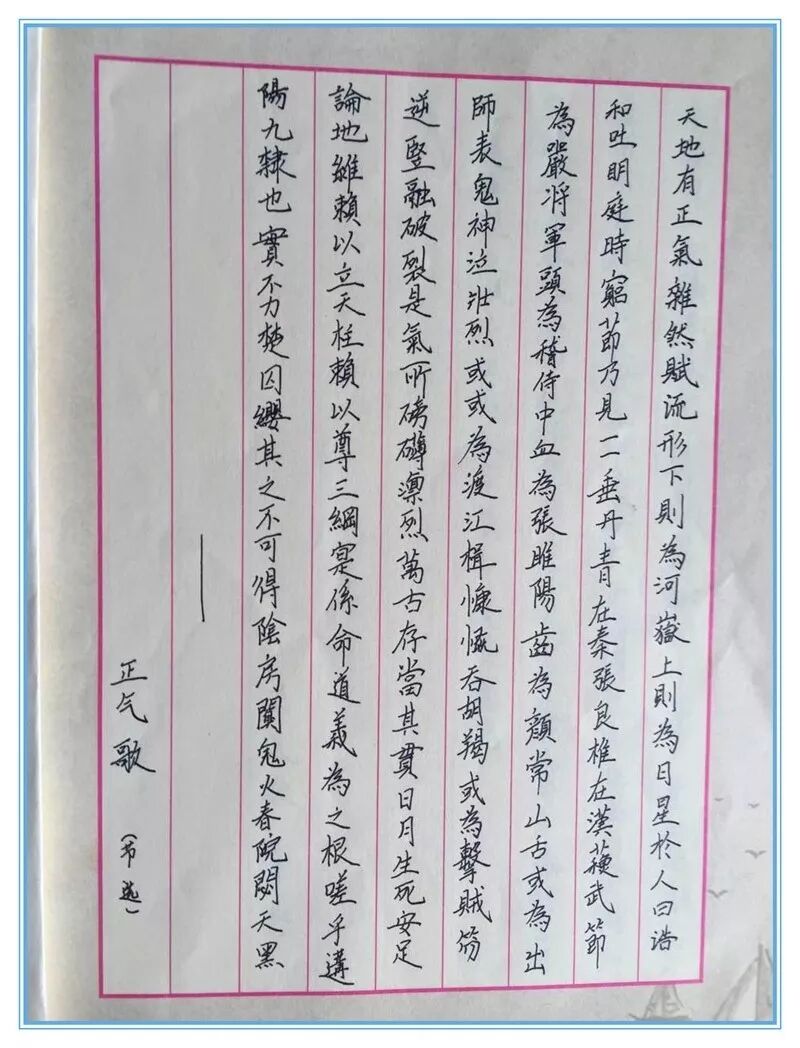 天地有正氣雜然賦流形下則為河嶽上則為日星於人曰浩
和吐明庭時窮節乃見一一垂丹青在秦張良椎在漢蘇武節
為嚴将軍頭為稽侍中血為張睢陽齒為顏常山舌或為出
師表鬼神泣壯烈或或為渡江楫慷慨吞胡羯或為擊賊笏
逆豎融破裂是氣所磅礴凛烈萬古存當其貫日月生死安足
論地維賴以立天柱賴以尊三綱寔係命道義為之根嗟乎遘
陽九隸也實不力楚囚纓其之不可得陰房闃鬼火春院閟天黑
正气歌（节选）